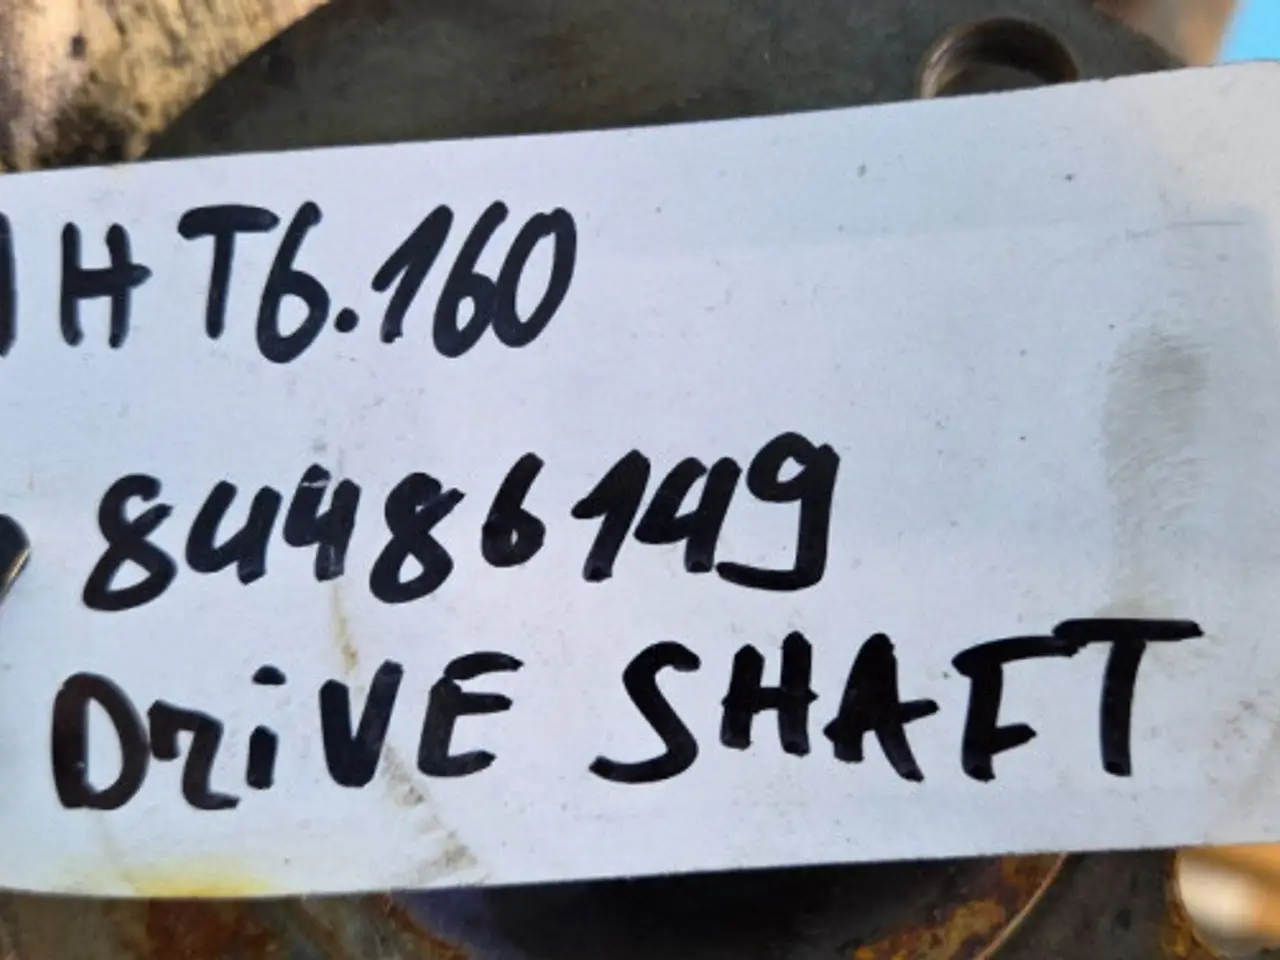 NH T6.160
84486149
DriVE SHAFT